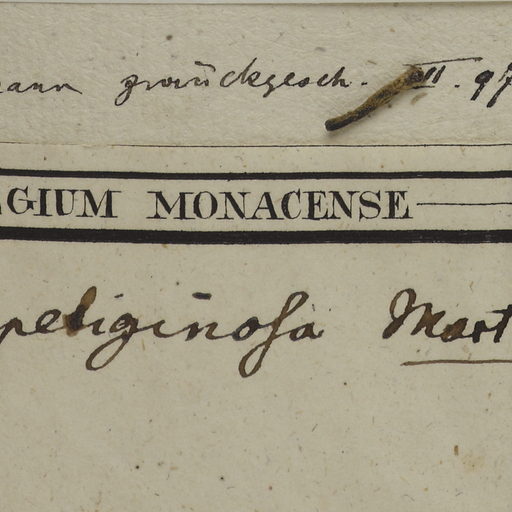 mann zurückgesch. III. 97
GIUM MONACENSE
petiginosa Mart